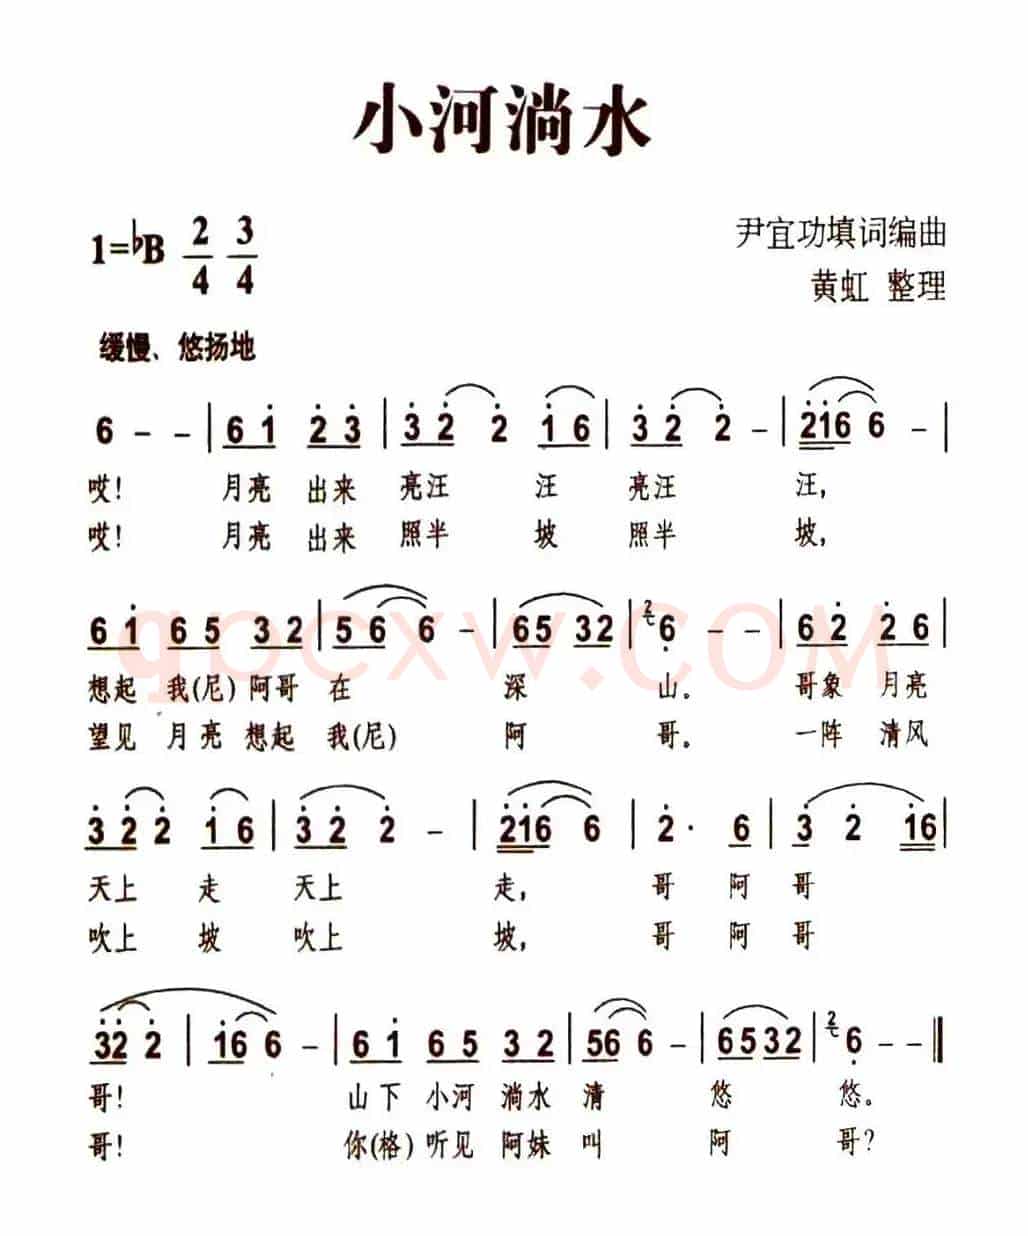 小河淌水
1=♭B 2/4 3/4
尹宜功填词编曲
黄虹 整理
缓慢、悠扬地
6 - - | 6 1̇ 2̇ 3̇ | 3̇ 2̇ 2̇ 1̇ 6 | 3̇ 2̇ 2̇ - | 2̇1̇6 6 - |
哎! 月亮 出来 亮汪 汪 亮汪 汪,
哎! 月亮 出来 照半 坡 照半 坡,
6 1̇ 6 5 3 2 | 5 6 6 - | 65 32 | 2 6̣ - - | 6 2̇ 2̇ 6 |
想起 我(尼) 阿哥 在 深 山. 哥象 月亮
望见 月亮 想起 我(尼) 阿 哥. 一阵 清风
qpcxw.COM
3̇ 2̇ 2̇ 1̇ 6 | 3̇ 2̇ 2̇ - | 2̇1̇6 6 | 2̇ · 6 | 3̇ 2̇ 1̇6 |
天上 走 天上 走, 哥 阿 哥
吹上 坡 吹上 坡, 哥 阿 哥
3̇2̇ 2̇ | 1̇6 6 - | 6 1̇ 6 5 3 2 | 56 6 - | 65 32 | 2 6̣ - - ‖
哥! 山下 小河 淌水 清 悠 悠。
哥! 你(格) 听见 阿妹 叫 阿 哥?